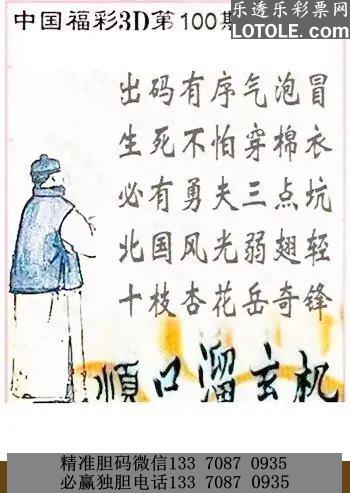 中国福彩3D第100期
乐透乐彩票网
LOTOLE.COM
出码有序气泡冒
生死不怕穿棉衣
必有勇夫三点坑
北国风光弱翅轻
十枝杏花岳奇锋
顺口溜玄机
精准胆码微信133 7087 0935
必赢独胆电话133 7087 0935